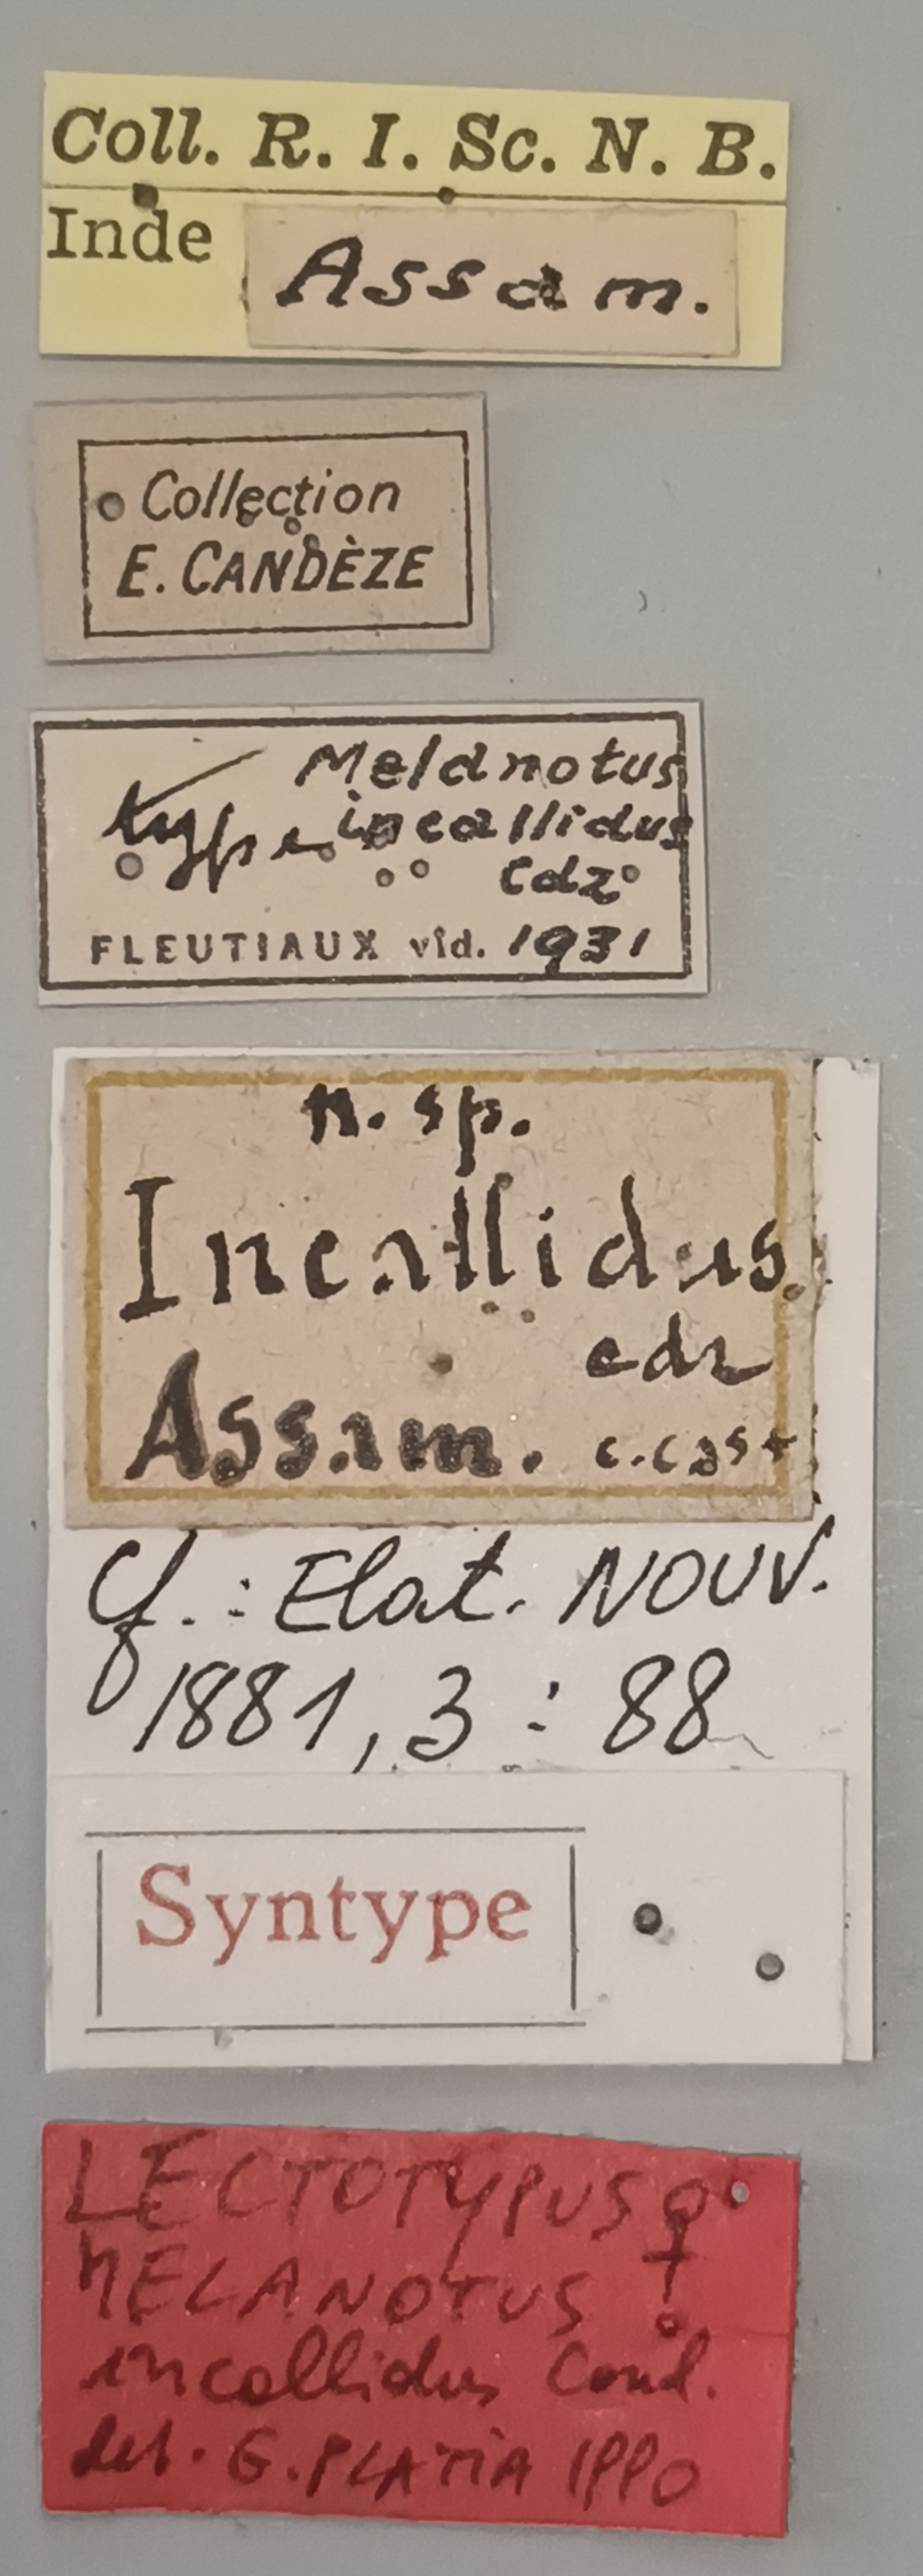 Coll. R. I. Sc. N. B.
Inde Assam.
Collection
E. CANDÈZE
type Melanotus
incallidus
Cdz
FLEUTIAUX vid. 1931
n. sp.
Incallidus
cdz
Assam. c. cast
Cf.: Elat. NOUV.
1881, 3 : 88
Syntype
LECTOTYPUS ♀
MELANOTUS
incallidus Cand.
det. G. PLATIA 1990